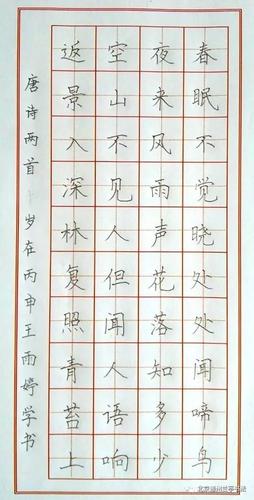 春眠不觉晓处处闻啼鸟
夜来风雨声花落知多少
空山不见人但闻人语响
返景入深林复照青苔上
唐诗两首 岁在丙申王雨婷学书